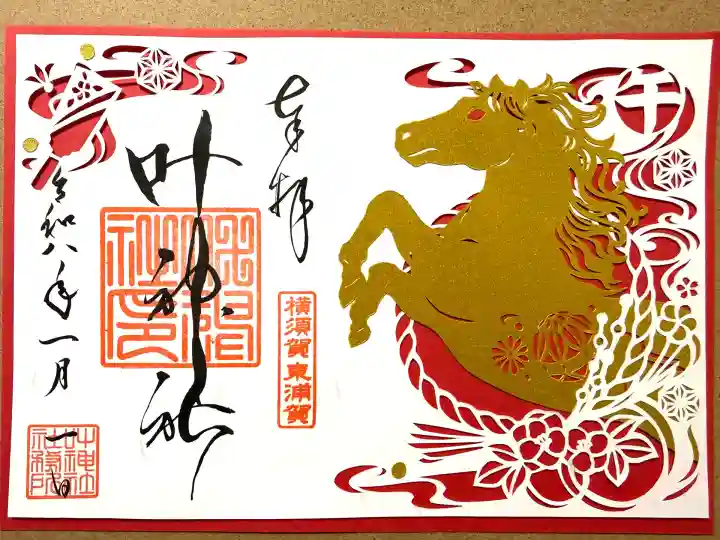 午
奉拝
横須賀東浦賀
叶神社
令和八年一月一日